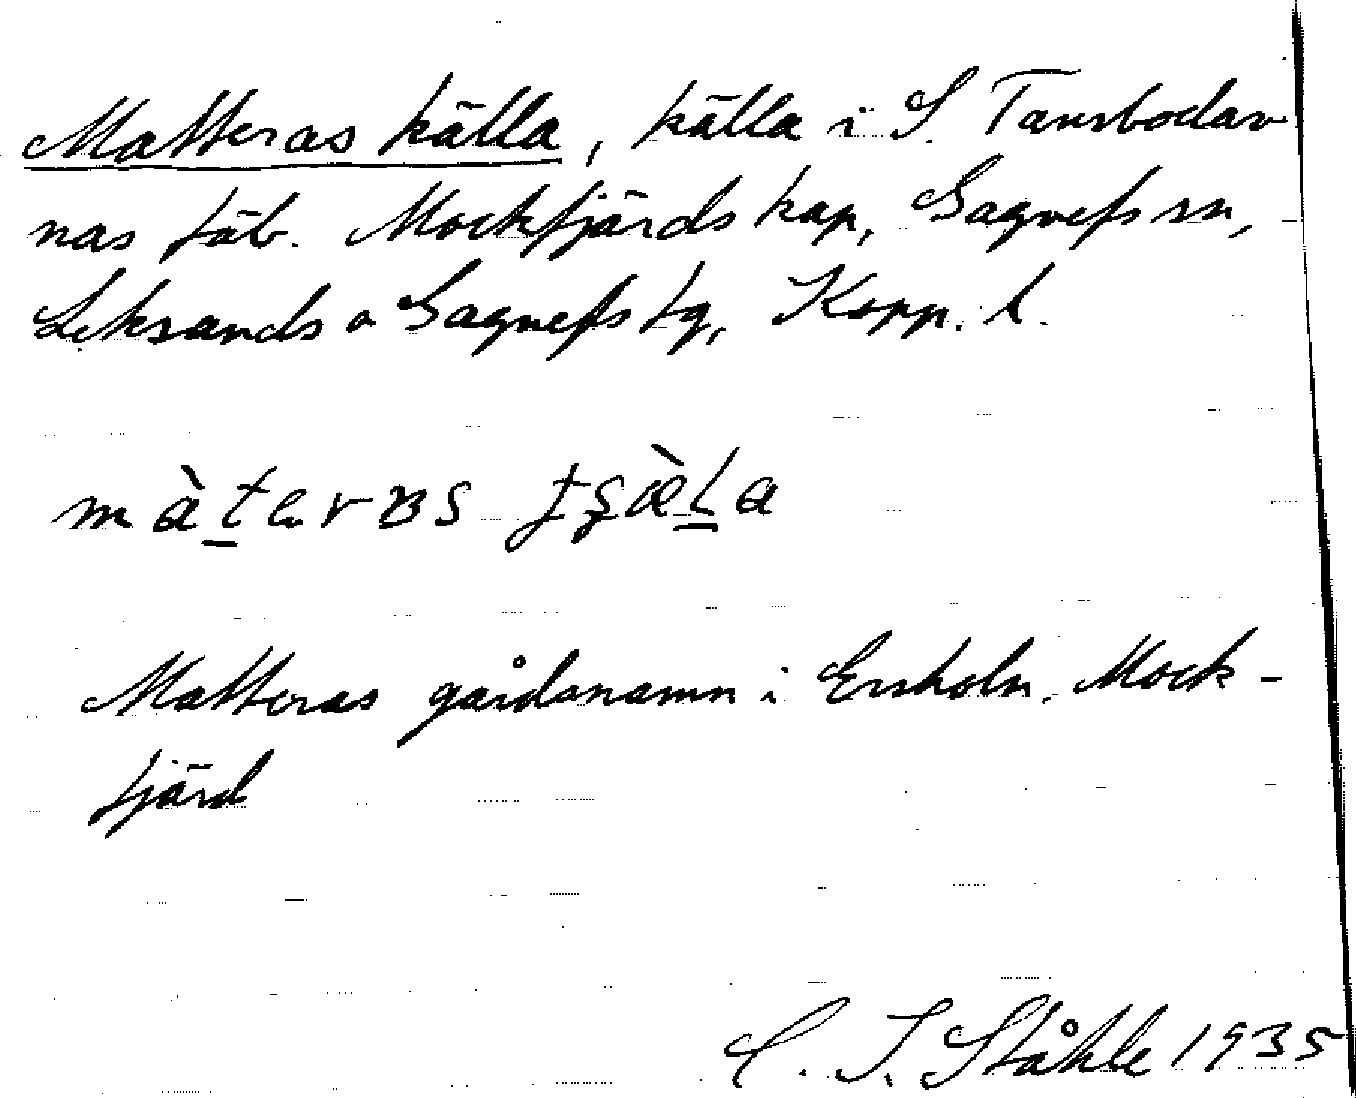 Matteras källa, källa i S. Tansbodar
nas fäb. Mockfjärds kap, Gagnefs sn,
Leksands o Gagnefs tg, Kopp. l.
Matteras gårdsnamn i Ersholn. Mock-
fjärd
C. I. Ståhle 1935